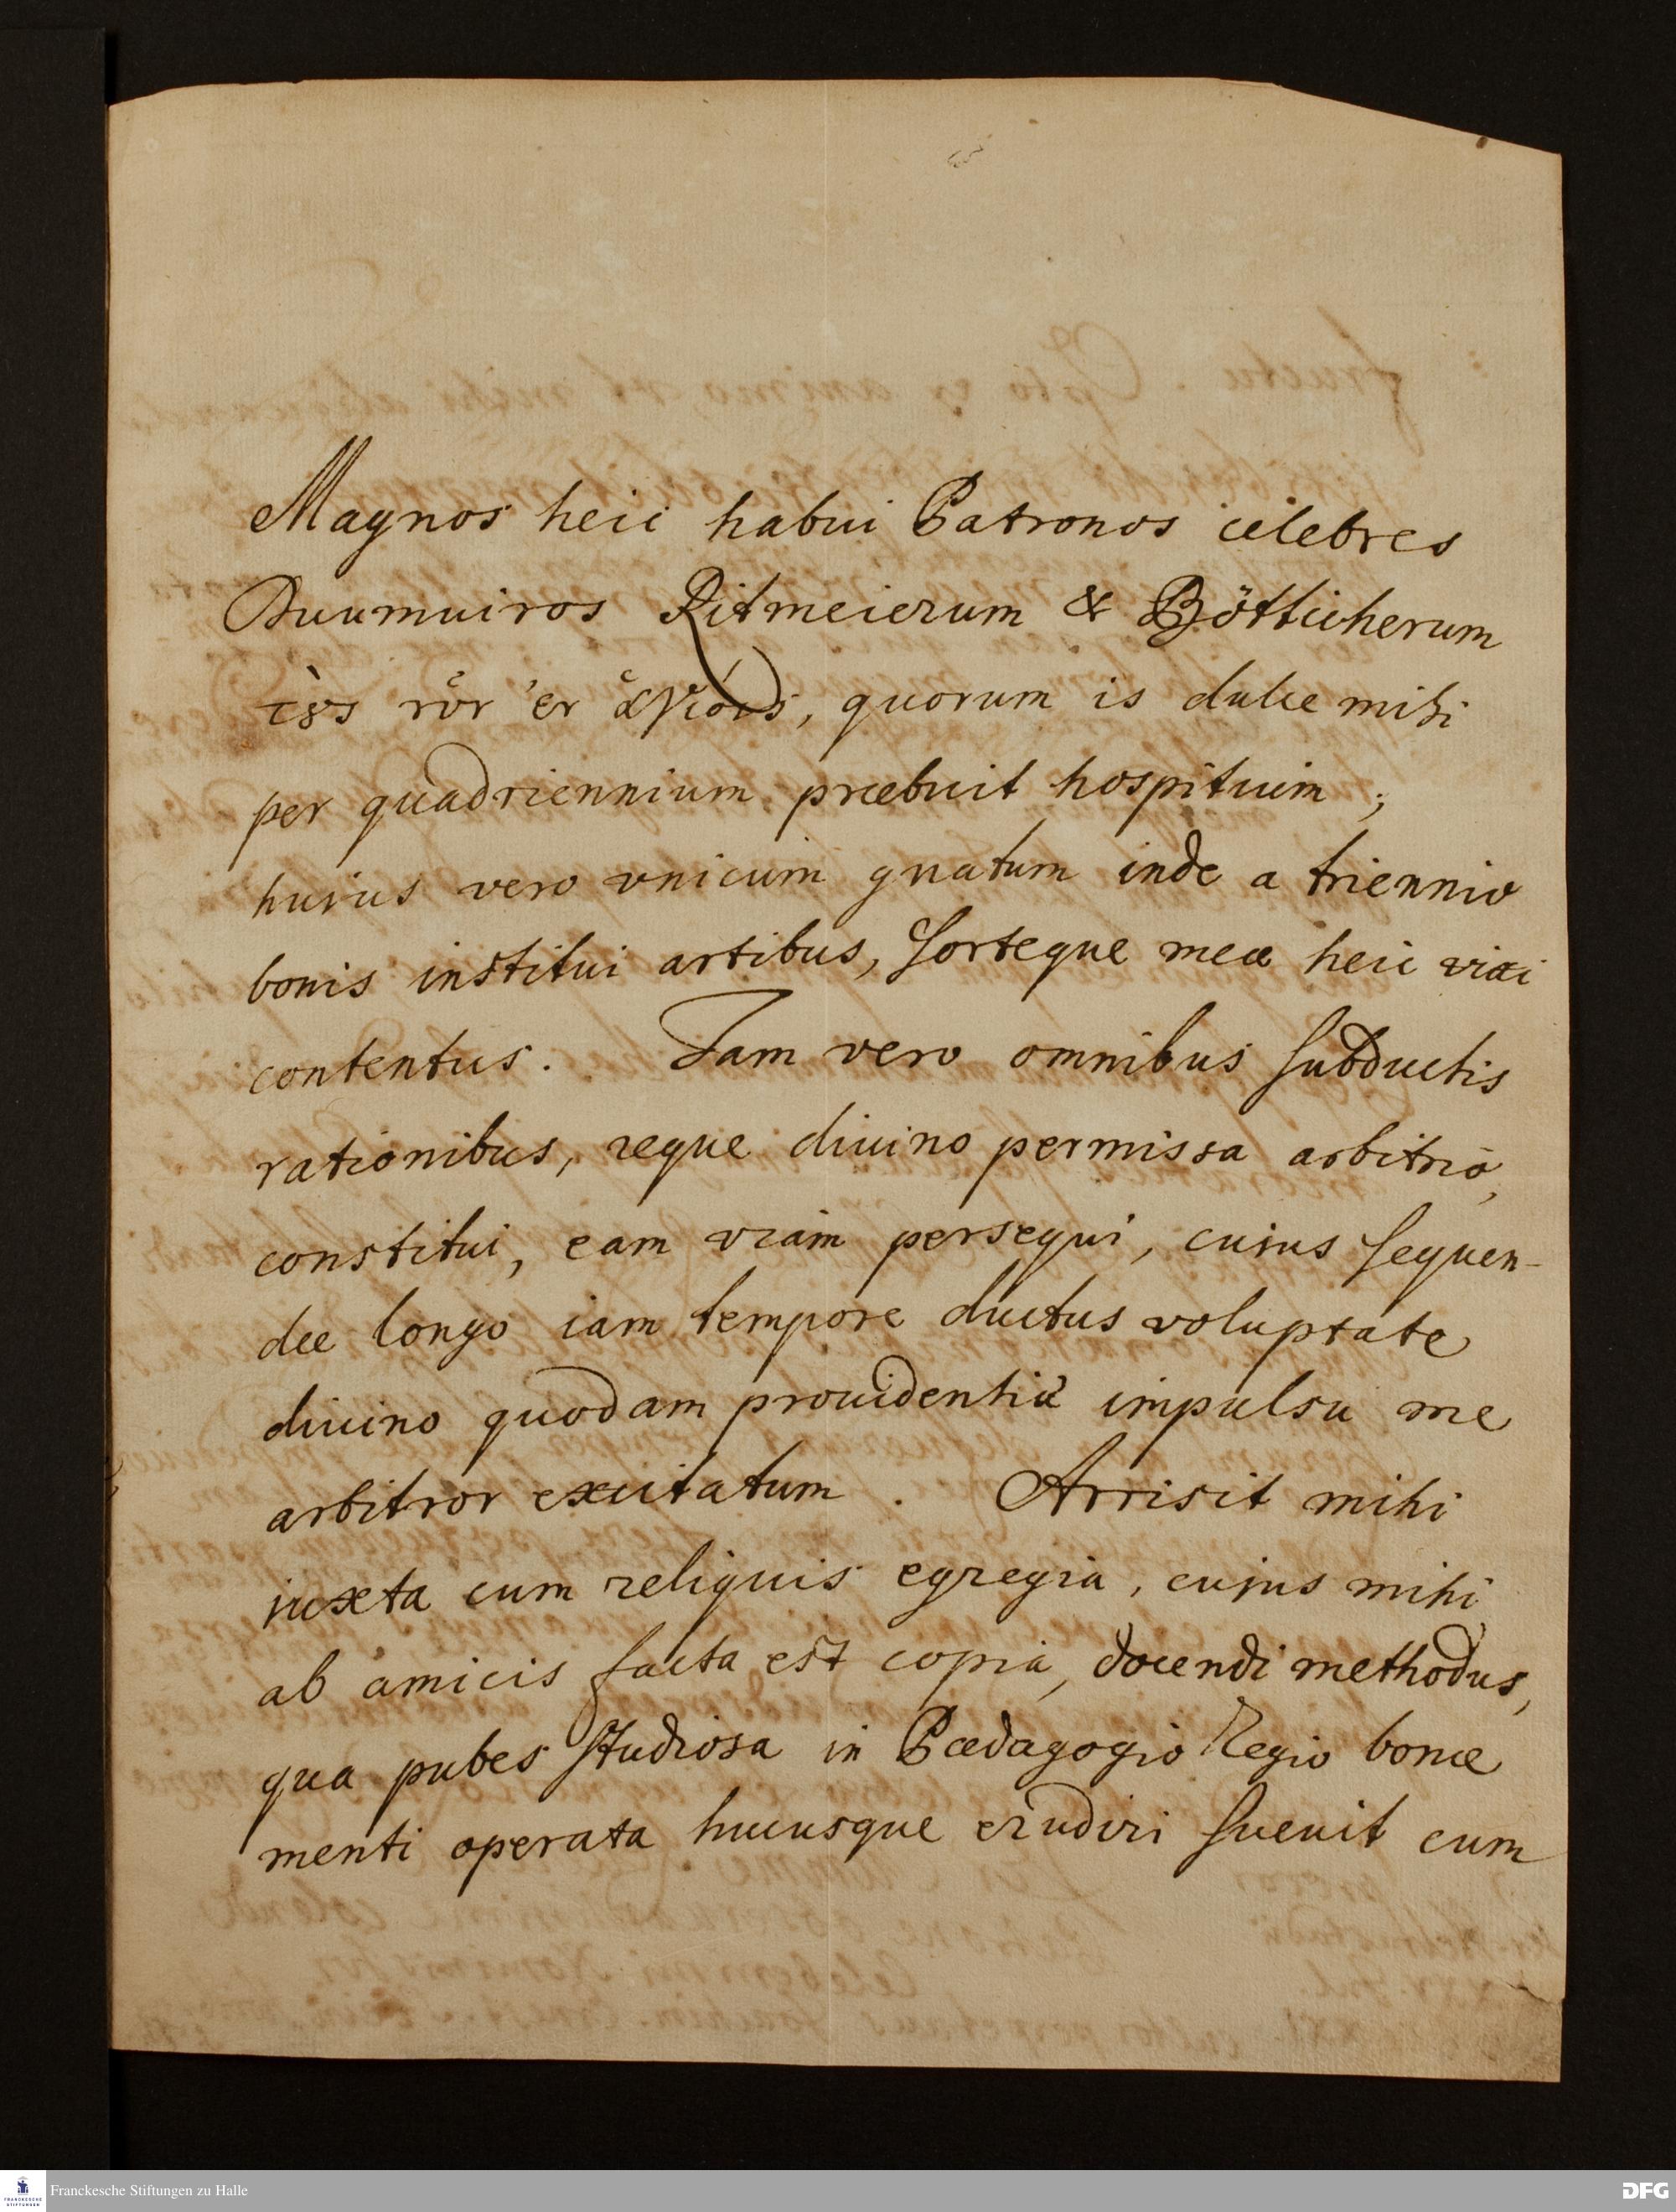 Magnos heic habui Patronos celebres
Duumuiros Ritmeierum & Bötticherum
τὲς νῦν ἐν ἁγίοις, quorum is dulce mihi
per quadriennium præbuit hospitium;
huius vero vnicum gnatum inde a triennio
bonis institui artibus, sorteque mea heic vixi
contentus. Jam vero omnibus subductis
rationibus, reque diuino permissa arbitrio,
constitui, eam viam persequi, cuius sequen-
dæ longo iam tempore ductus voluptate
diuino quodam prouidentiæ impulsu me
arbitror excitatum. Arrisit mihi
iuxta cum reliquis egregia, cujus mihi
ab amicis facta est copia, docendi methodus,
qua pubes studiosa in Pædagogio Regio bonæ
menti operata hucusque erudiri sueuit cum
Franckesche Stiftungen zu Halle
FRANCKESCHE STIFTUNGEN
DFG